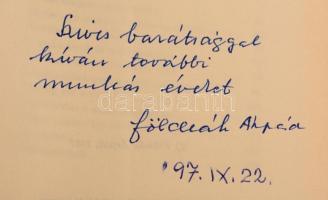 Szíves barátsággal
kíván további
munkás éveket
Földeák Árpád
'97. IX. 22.
darabanth